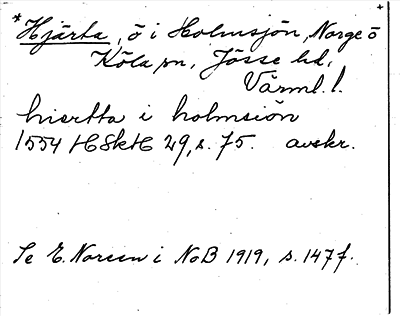 *Hjärta, ö i Holmsjön, Norge o
Köla sn, Jösse hd,
Värml. l.
hiertta i holmsiön
1554 HSkH 29, s. 75. avskr.
Se E. Noreen i NoB 1919, s. 147 f.